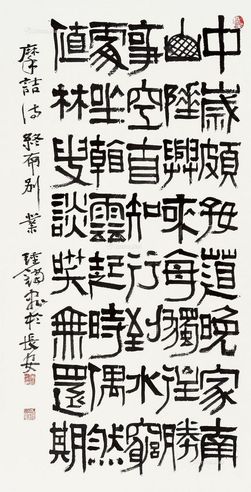 中歲頗好道晚家南
山陲興來每獨往勝
事空自知行到水窮
處坐看雲起時偶然
值林叟談笑無還期
摩詰詩終南別業
於長安